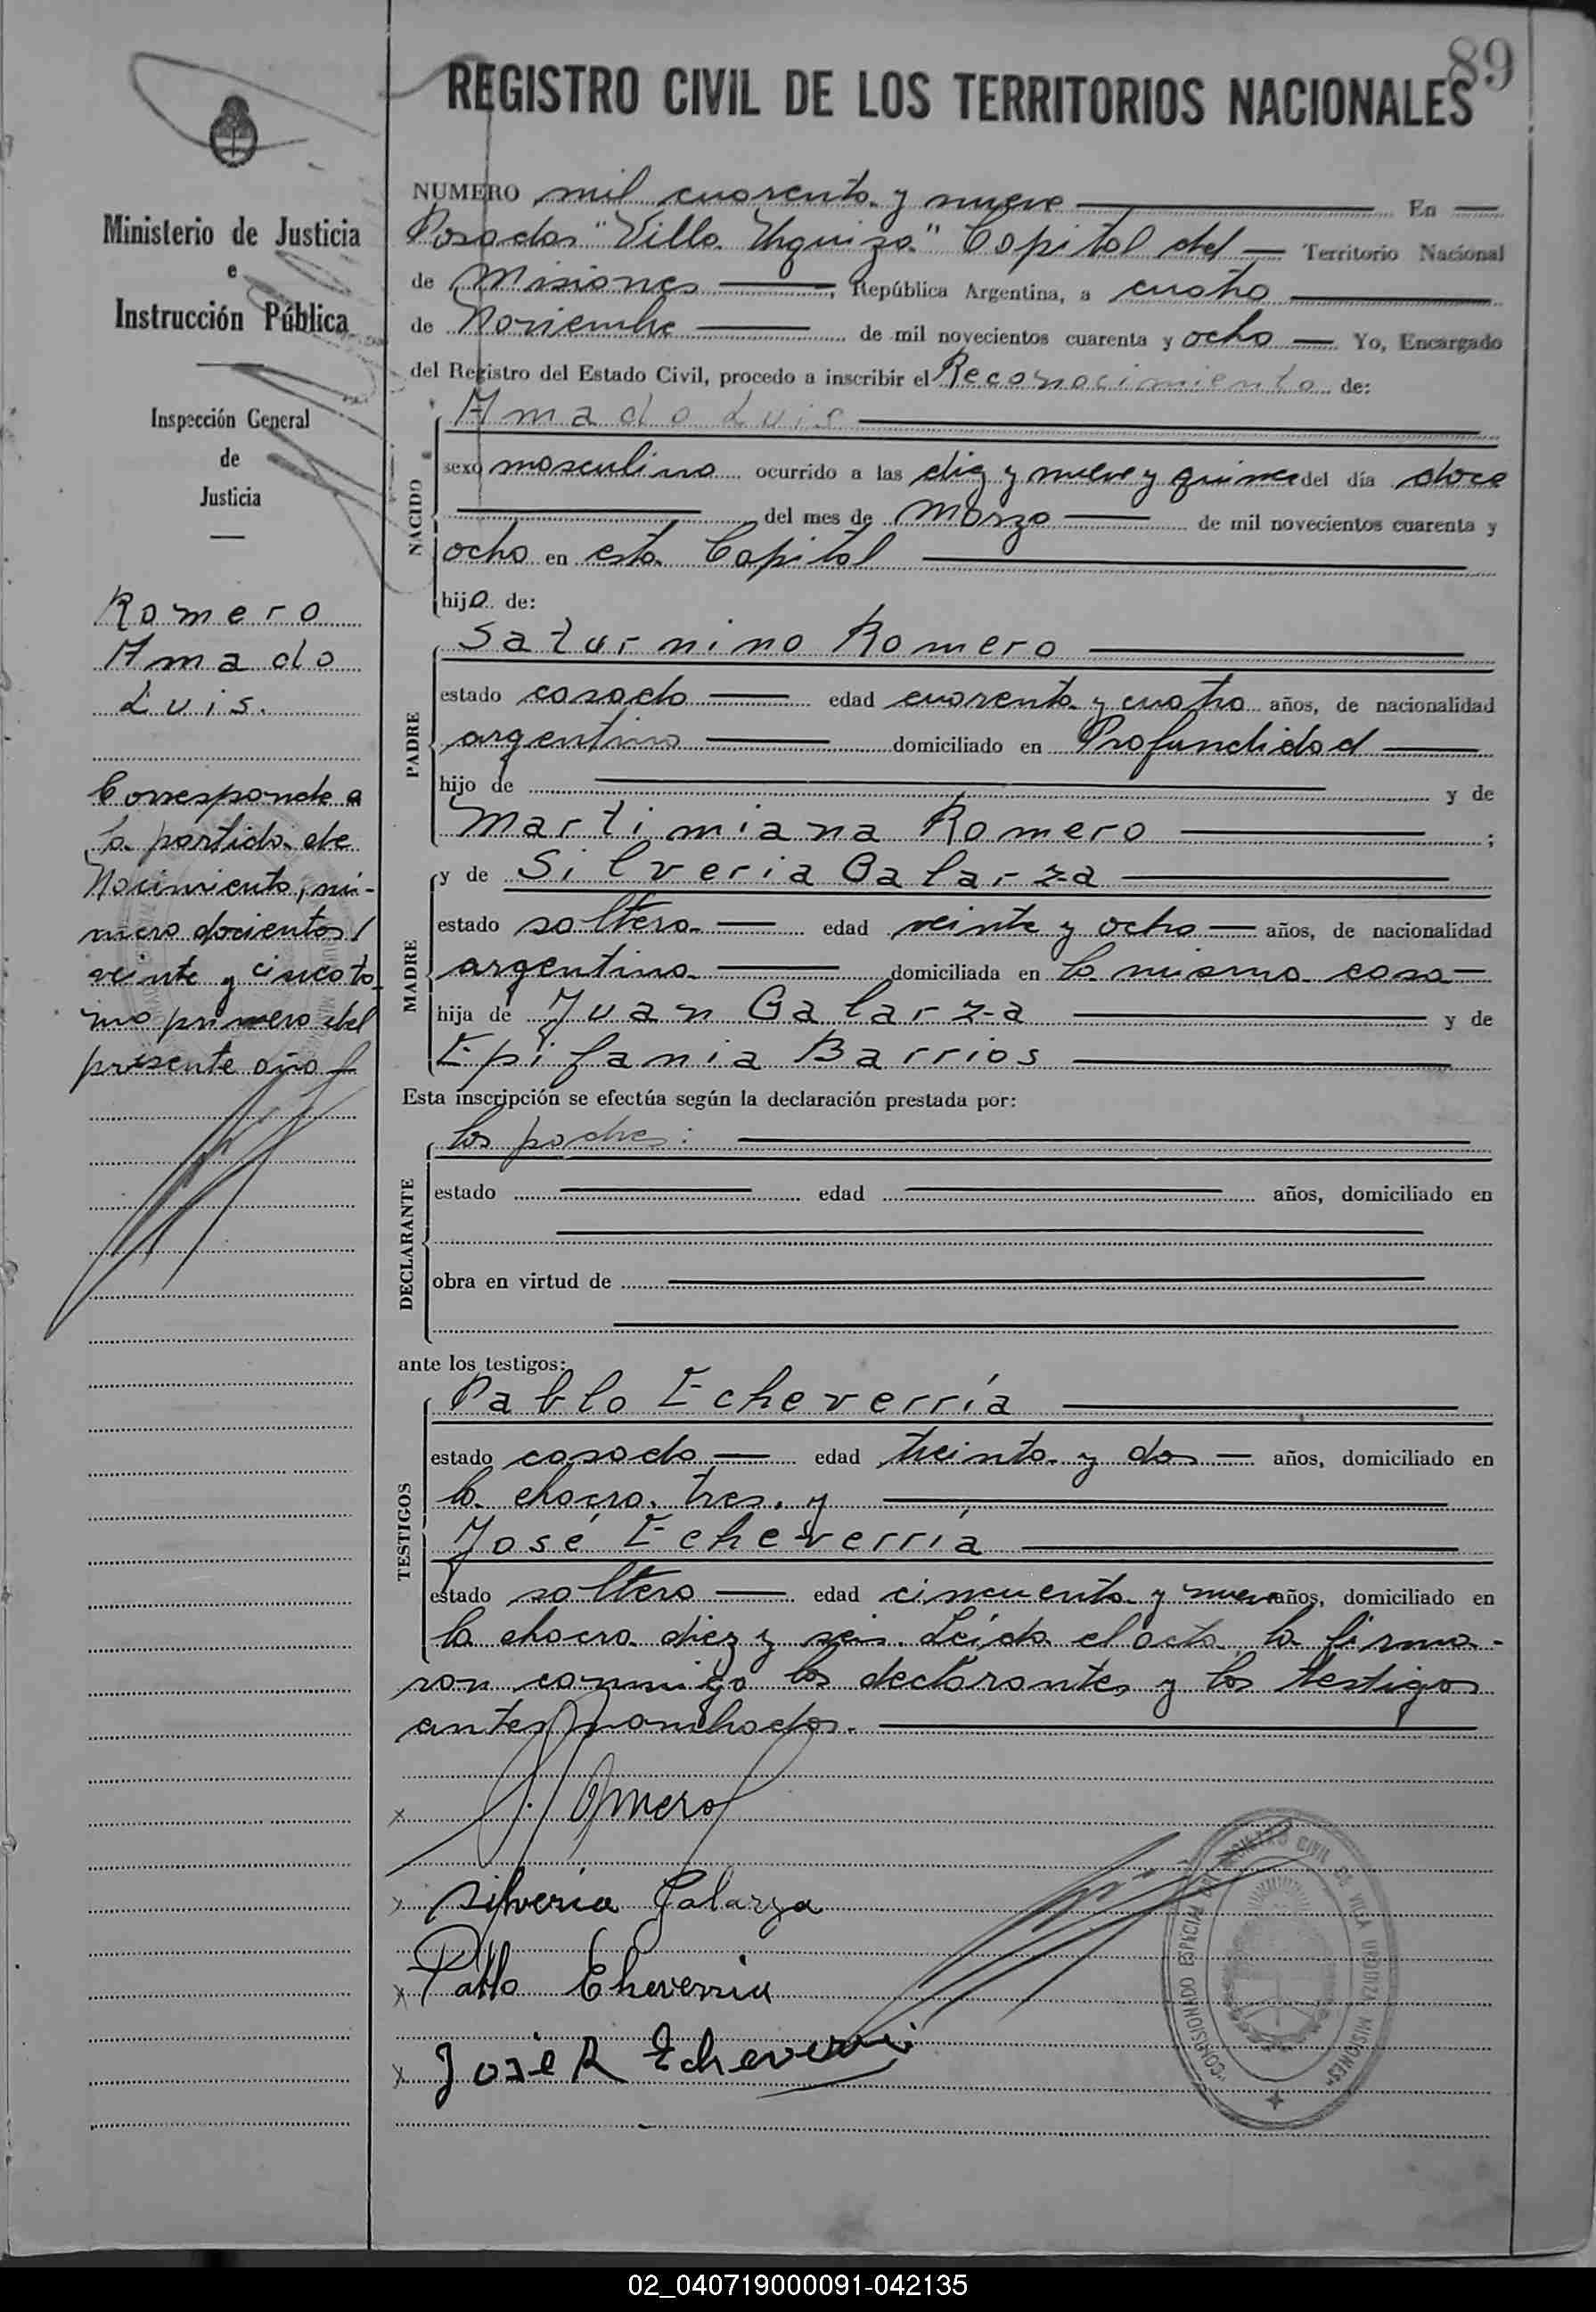 89
REGISTRO CIVIL DE LOS TERRITORIOS NACIONALES
Ministerio de Justicia
e
Instrucción Pública
Inspección General
de
Justicia
Romero
Amado
Luis.
Corresponde a
la partida de
Nacimiento, nú-
mero docientos
veinte y cinco to-
mo primero del
presente año
NUMERO mil cuarenta y nueve En
Posadas "Villa Urquiza" Capital del Territorio Nacional
de Misiones, República Argentina, a cuatro
de Noviembre de mil novecientos cuarenta y ocho Yo, Encargado
del Registro del Estado Civil, procedo a inscribir el Reconocimiento de:
NACIDO
Amado Luis
sexo masculino ocurrido a las diez y nueve y quince del día doce
del mes de Marzo de mil novecientos cuarenta y
ocho en esta Capital
hijo de:
PADRE
Saturnino Romero
estado casado edad cuarenta y cuatro años, de nacionalidad
argentino domiciliado en Profundidad
hijo de y de
Martimiana Romero ;
MADRE
y de Silveria Galarza
estado soltera edad veinte y ocho años, de nacionalidad
argentina domiciliada en la misma casa
hija de Juan Galarza y de
Epifania Barrios
Esta inscripción se efectúa según la declaración prestada por:
DECLARANTE
los padres:
estado edad años, domiciliado en
obra en virtud de
ante los testigos:
TESTIGOS
Pablo Echeverría
estado casado edad treinta y dos años, domiciliado en
la chacra tres. y
José Echeverría
estado soltero edad cincuenta y nueve años, domiciliado en
la chacra diez y seis. Leída el acta la firma-
ron conmigo los declarantes y los testigos
antes nombrados.
x S. Romero
x Silveria Galarza
x Pablo Echeverria
x José R Echeverri
"COMISIONADO ESPECIAL DEL REGISTRO CIVIL DE VILLA URQUIZA MISIONES"
02_040719000091-042135